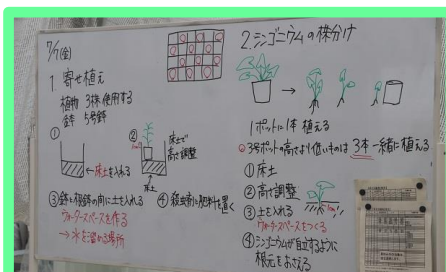 7/17(金)
1 寄せ植え
植物 3株使用する
鉢 5号鉢
①
←床土を入れる
②
床土で
高さ調整
床土
③鉢と根鉢の間に土を入れる
ウォータースペースを作る
→水を溜める場所
④殺虫剤と肥料を置く
2.シンゴニウムの株分け
1ポットに1本植える
3号ポットの高さより低いものは3本一緒に植える
①床土
②高さ調整
③土を入れる
ウォータースペースをつくる
④シンゴニウムが自立するように
根元をおさえる